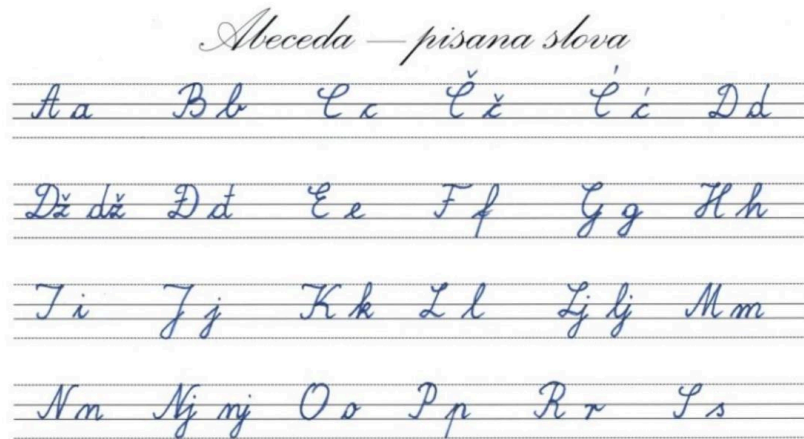 Abeceda — pisana slova
A a B b C c Č č Ć ć D d
Dž dž Đ đ E e F f G g H h
I i J j K k L l Lj lj M m
N n Nj nj O o P p R r S s